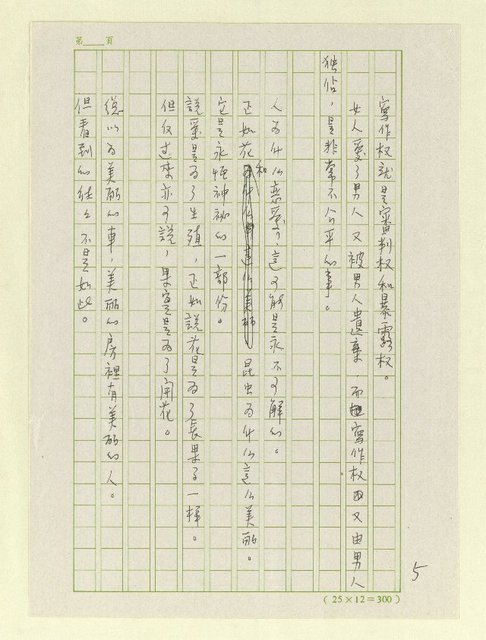 第　頁
寫作权就是審判权和暴露权。
女人愛了男人 又被男人遺棄 而寫作权又由男人
独佔，是非常不公平的事。
人为什么恋爱，这可能是永不可解的。
正如花和昆虫为什么这么美丽。
它是永恒神祕的一部份。
說愛是为了生殖，正如說花是为了長果子一樣。
但仅过来亦可說，果实是为了開花。
總以为美丽的車，美丽的房裡有美丽的人。
但看到的往往不是如此。
5
(25×12=300)